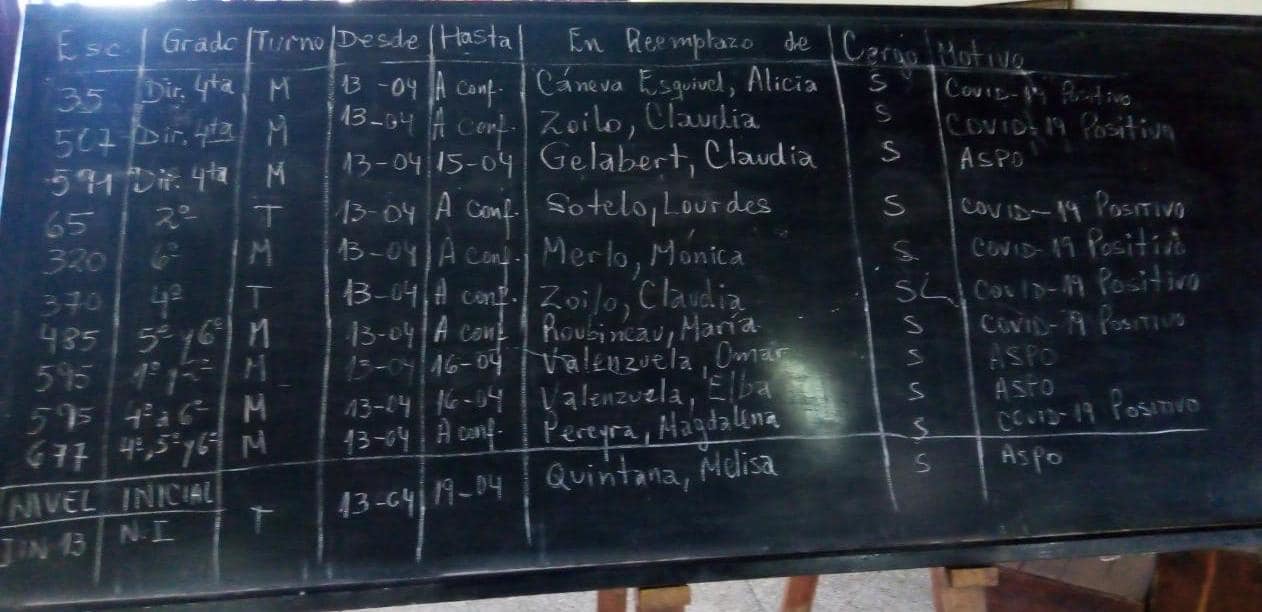 Esc Grado Turno Desde Hasta En Reemplazo de Cargo Motivo
35 Dir. 4ta M 13-04 A conf. Cáneva Esquivel, Alicia S Covid-19 Positivo
567 Dir. 4ta M 13-04 A conf. Zoilo, Claudia S COVID-19 Positivo
591 Dir. 4ta M 13-04 15-04 Gelabert, Claudia S ASPO
65 2º T 13-04 A conf. Sotelo, Lourdes S COVID-19 POSITIVO
320 6º M 13-04 A conf. Merlo, Mónica S COVID-19 Positivo
370 4º T 13-04 A conf. Zoilo, Claudia Covid-19 Positivo
485 5º y 6º M 13-04 A conf Roubineau, María S COVID-19 POSITIVO
595 1º y 2º M 13-04 16-04 Valenzuela, Omar S ASPO
595 4º a 6º M 13-04 16-04 Valenzuela, Elba S ASPO
677 4º, 5º y 6º M 13-04 A conf. Pereyra, Magdalena S COVID-19 POSITIVO
NIVEL INICIAL
JIN 13 N.I T 13-04 19-04 Quintana, Melisa S ASPO